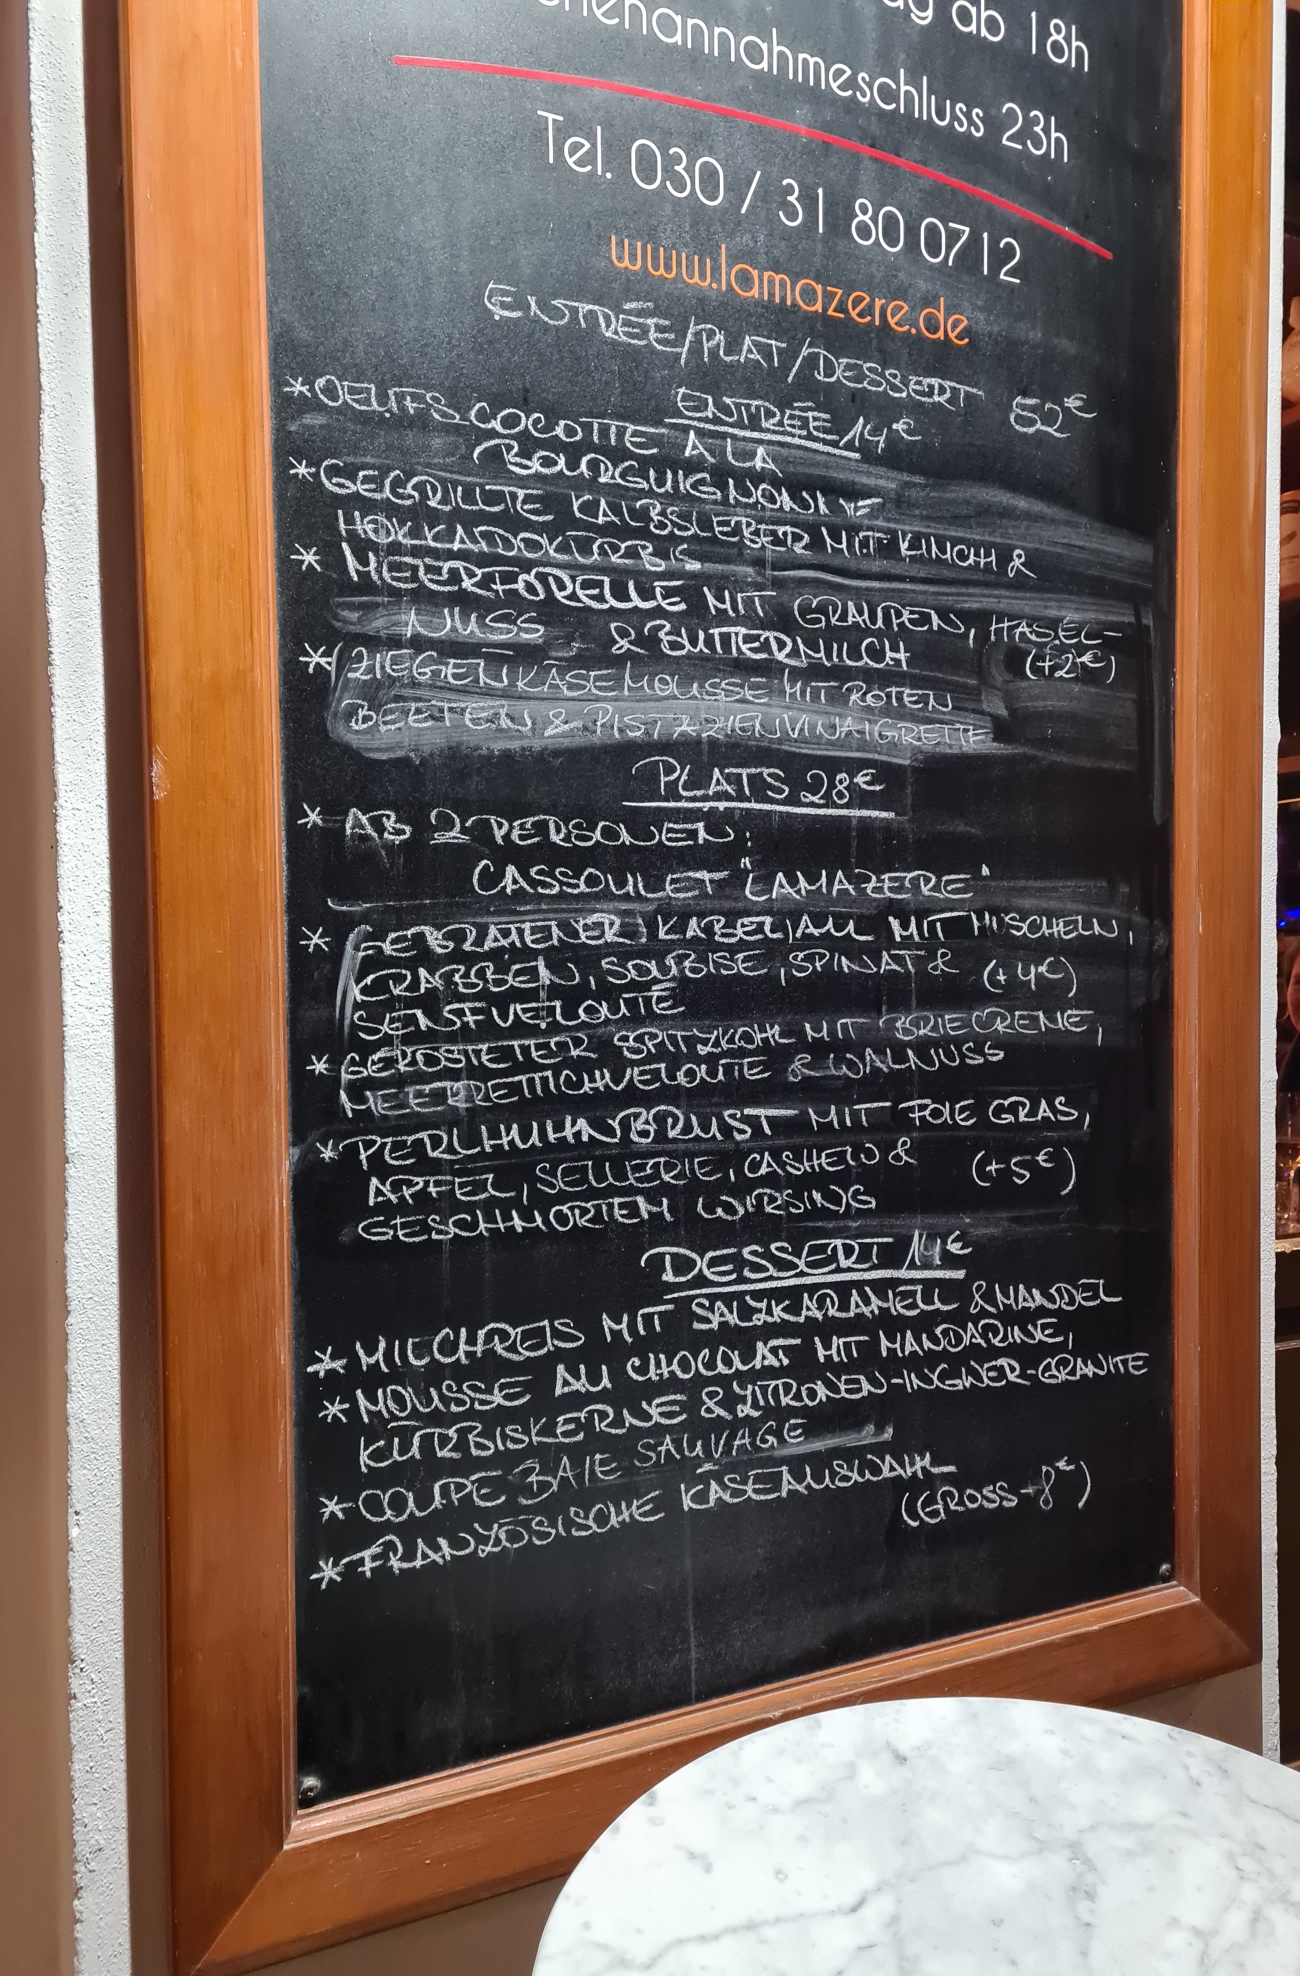 ab 18h
henannahmeschluss 23h
Tel. 030 / 31 80 0712
www.lamazere.de
ENTRÉE/PLAT/DESSERT 52€
ENTRÉE 14€
*OEUFS COCOTTE A LA
BOURGUIGNONNE
*GEGRILLTE KALBSLEBER MIT KIMCHI &
HOKKAIDOKÜRBIS
* MEERFORELLE MIT GRAUPEN, HASEL-
NUSS & BUTTERMILCH (+2€)
* ZIEGENKÄSEMOUSSE MIT ROTEN
BEETEN & PISTAZIENVINAIGRETTE
PLATS 28€
* AB 2 PERSONEN:
CASSOULET "LAMAZERE"
* GEBRATENER KABELJAU MIT MUSCHELN,
KRABBEN, SOUBISE, SPINAT & (+4€)
SENFVELOUTÉ
*GERÖSTETER SPITZKOHL MIT BRIECREME,
MEERRETTICHVELOUTE & WALNUSS
*PERLHUHNBRUST MIT FOIE GRAS,
APFEL, SELLERIE, CASHEW & (+5€)
GESCHMORTEM WIRSING
DESSERT 14€
*MILCHREIS MIT SALZKARAMELL & MANDEL
*MOUSSE AU CHOCOLAT MIT MANDARINE,
KÜRBISKERNE & ZITRONEN-INGWER-GRANITE
*COUPE BAIE SAUVAGE
*FRANZÖSISCHE KÄSEAUSWAHL
(GROSS +8€)